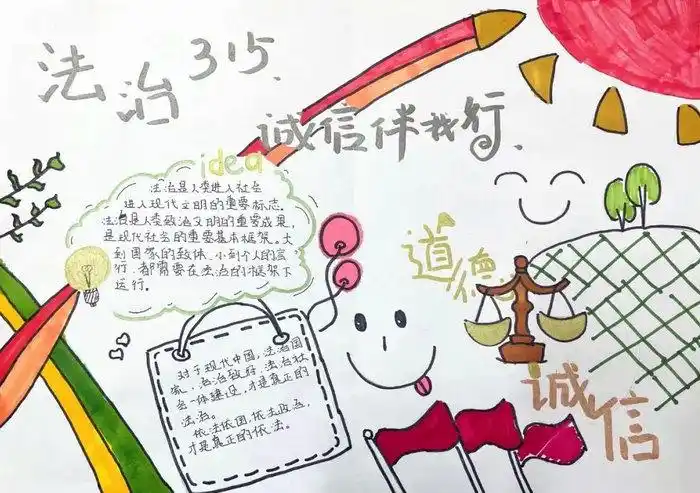 法治315、
诚信伴我行、
idea
法治是人类进入社会
进入现代文明的重要标志.
法治是人类政治文明的重要成果,
是现代社会的重要基本框架。大
到国家的政体,小到个人的言
行,都需要在法治的框架下
运行。
道德
对于现代中国,法治国
家、法治政府、法治社
会一体建设,才是真正的
法治。
依法依国,依法政点,
才是真正的依法。
诚信